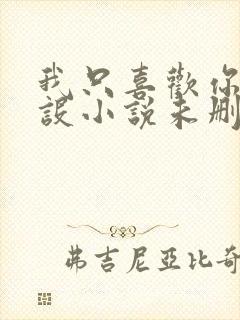 我只喜歡你
設小說未刪
弗吉尼亞比奇